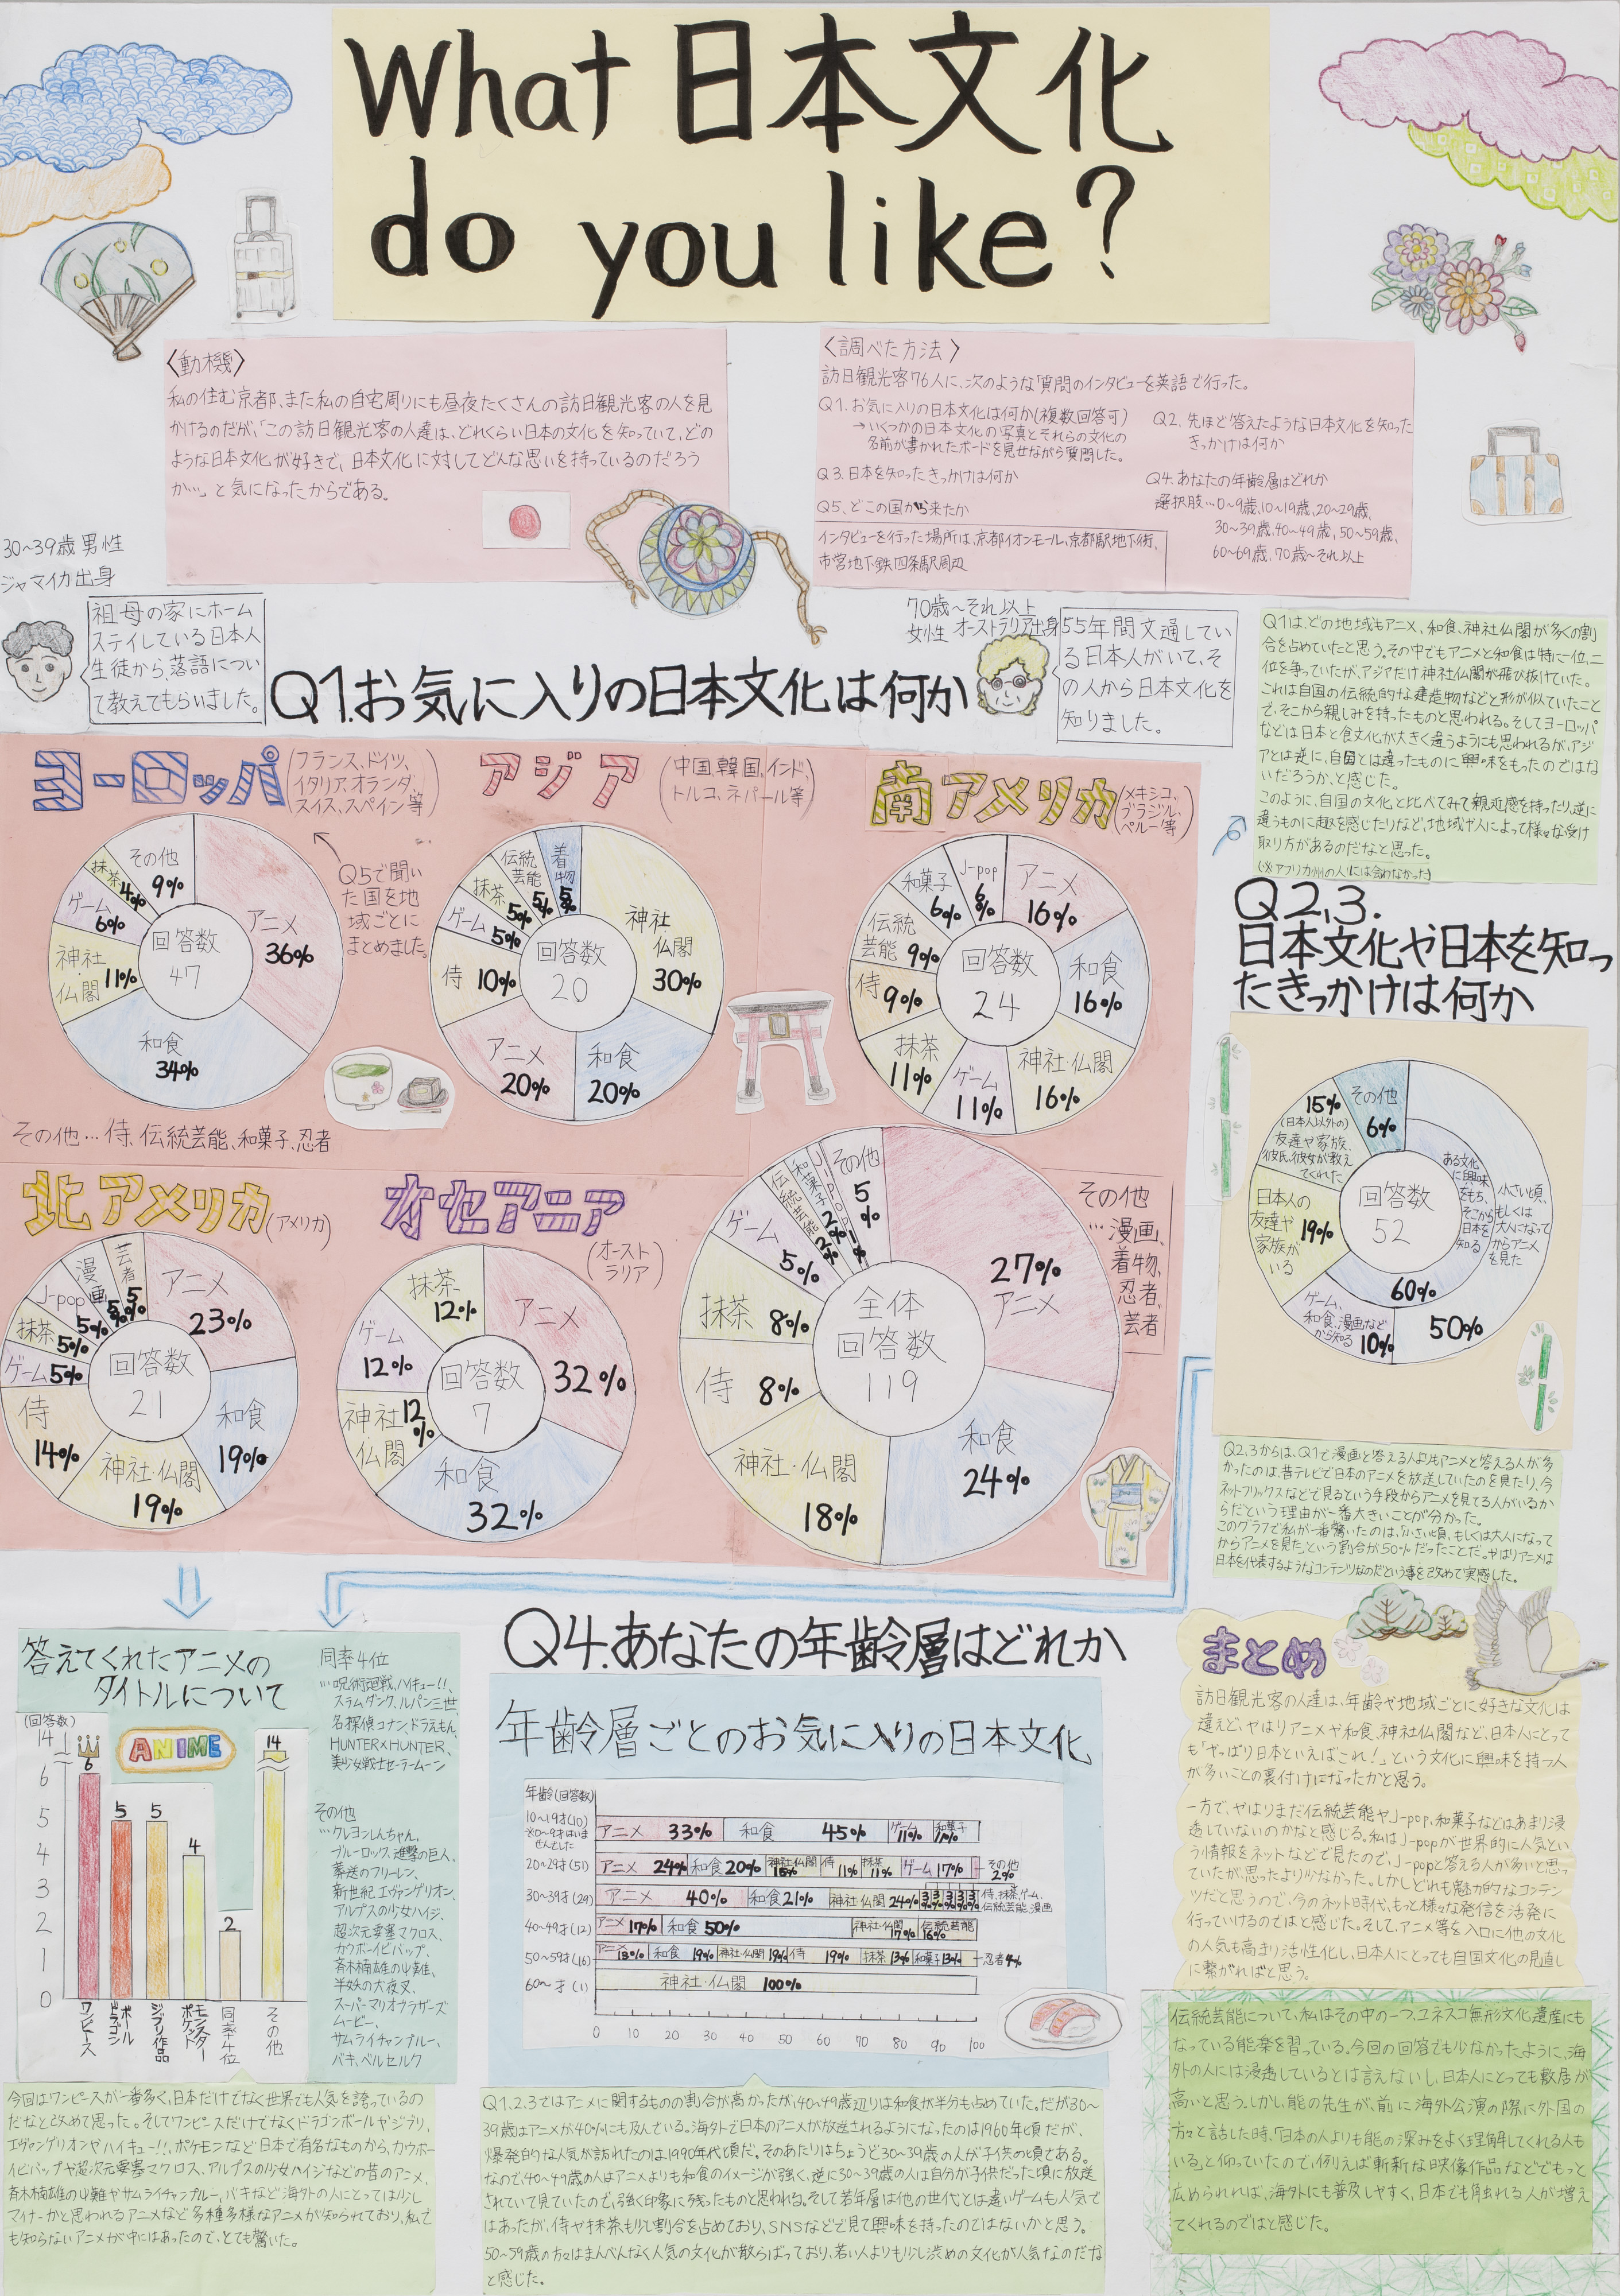 What 日本文化
do you like?
〈動機〉
私の住む京都、また私の自宅周りにも昼夜たくさんの訪日観光客の人を見
かけるのだが、「この訪日観光客の人達は、どれくらい日本の文化を知っていて、どの
ような日本文化が好きで、日本文化に対してどんな思いを持っているのだろう
か…」と気になったからである。
〈調べた方法〉
訪日観光客76人に、次のような質問のインタビューを英語で行った。
Q1. お気に入りの日本文化は何か(複数回答可)
→いくつかの日本文化の写真とそれらの文化の
名前が書かれたボードを見せながら質問した。
Q2. 先ほど答えたような日本文化を知った
きっかけは何か
Q3. 日本を知ったきっかけは何か
Q4. あなたの年齢層はどれか
選択肢…0~9歳、10~19歳、20~29歳、
30~39歳、40~49歳、50~59歳、
60~69歳、70歳~それ以上
Q5. どこの国から来たか
インタビューを行った場所は、京都イオンモール、京都駅地下街、
市営地下鉄四条駅周辺
30~39歳 男性
ジャマイカ出身
祖母の家にホーム
ステイしている日本人
生徒から落語につい
て教えてもらいました。
70歳~それ以上
女性 オーストラリア出身
55年間文通してい
る日本人がいて、そ
の人から日本文化を
知りました。
Q1.お気に入りの日本文化は何か
ヨーロッパ
(フランス、ドイツ、
イタリア、オランダ、
スイス、スペイン等)
アニメ
36%
和食
34%
神社
仏閣 11%
ゲーム
6%
抹茶 4%
その他
9%
回答数
47
Q5で聞い
た国を地
域ごとに
まとめました。
その他…侍、伝統芸能、和菓子、忍者
アジア
(中国、韓国、インド、
トルコ、ネパール等)
神社
仏閣
30%
和食
20%
アニメ
20%
侍 10%
ゲーム 5%
抹茶 5%
伝統
芸能 5%
着物 5%
回答数
20
南アメリカ
(メキシコ、
ブラジル、
ペルー等)
アニメ
16%
和食
16%
神社・仏閣
16%
ゲーム
11%
抹茶
11%
侍 9%
伝統
芸能 9%
和菓子
6%
J-pop
6%
回答数
24
北アメリカ
(アメリカ)
アニメ
23%
和食
19%
神社・仏閣
19%
侍
14%
ゲーム 5%
抹茶 5%
J-pop 5%
漫画 5%
芸者 5%
回答数
21
オセアニア
(オースト
ラリア)
アニメ
32%
和食
32%
神社
仏閣 12%
ゲーム
12%
抹茶
12%
回答数
7
27%
アニメ
和食
24%
神社・仏閣
18%
侍 8%
抹茶 8%
ゲーム
5%
伝統芸能 2%
和菓子 2%
J-pop 1%
その他
5%
全体
回答数
119
その他
…漫画、
着物、
忍者、
芸者
Q1は、どの地域もアニメ、和食、神社仏閣が多くの割
合を占めていたと思う。その中でもアニメと和食は特に一位、二
位を争っていたが、アジアだけ神社仏閣が飛び抜けていた。
これは自国の伝統的な建造物などと形が似ていたこと
で、そこから親しみを持ったものと思われる。そしてヨーロッパ
などは日本と食文化が大きく違うようにも思われるが、アジ
アとは逆に、自国とは違ったものに興味をもったのではな
いだろうか、と感じた。
このように、自国の文化と比べてみて親近感を持ったり、逆に
違うものに趣を感じたりなど、地域や人によって様々な受け
取り方があるのだなと思った。
(※アフリカ州の人には会わなかった)
Q2,3.
日本文化や日本を知っ
たきっかけは何か
ある文化
に興味
をもち、
そこから
日本を
知る
60%
小さい頃、
もしくは
大人になって
からアニメ
を見た
50%
ゲーム、
和食、漫画など
から知る 10%
日本人の
友達や
家族が
いる 19%
15%
(日本人以外の)
友達や家族、
彼氏、彼女が教え
てくれた
その他
6%
回答数
52
Q2,3からは、Q1で漫画と答える人よりもアニメと答える人が多
かったのは、昔テレビで日本のアニメを放送していたのを見たり、今
ネットフリックスなどで見るという手段からアニメを見てる人がいるか
らだという理由が一番大きいことが分かった。
このグラフで私が一番驚いたのは、「小さい頃、もしくは大人になって
からアニメを見た」という割合が50%だったことだ。やはりアニメは
日本を代表するようなコンテンツなのだという事を改めて実感した。
答えてくれたアニメの
タイトルについて
(回答数)
14
6
5
4
3
2
1
0
ANIME
6
5
5
4
2
14
ワンピース
ドラゴンボール
ジブリ作品
ポケットモンスター
同率4位
その他
同率4位
…呪術廻戦、ハイキュー!!、
スラムダンク、ルパン三世、
名探偵コナン、ドラえもん、
HUNTER×HUNTER、
美少女戦士セーラームーン
その他
…クレヨンしんちゃん、
ブルーロック、進撃の巨人、
葬送のフリーレン、
新世紀エヴァンゲリオン、
アルプスの少女ハイジ、
超次元要塞マクロス、
カウボーイビバップ、
斉木楠雄のΨ難、
半妖の犬夜叉、
スーパーマリオブラザーズ
ムービー、
サムライチャンプルー、
バキ、ベルセルク
今回はワンピースが一番多く、日本だけでなく世界でも人気を誇っているの
だなと改めて思った。そしてワンピースだけでなくドラゴンボールやジブリ、
エヴァンゲリオンやハイキュー!!、ポケモンなど日本で有名なものから、カウボー
イビバップや超次元要塞マクロス、アルプスの少女ハイジなどの昔のアニメ、
斉木楠雄のΨ難やサムライチャンプルー、バキなど海外の人にとっては少し
マイナーかと思われるアニメなど多種多様なアニメが知られており、私で
も知らないアニメが中にはあったので、とても驚いた。
Q4.あなたの年齢層はどれか
年齢層ごとのお気に入りの日本文化
年齢(回答数)
10~19才(10)
※0~9才はいま
せんでした
アニメ 33% 和食 45% ゲーム 11% 和菓子 11%
20~29才(51) アニメ 24% 和食 20% 神社・仏閣 15% 侍 11% 抹茶 11% ゲーム 17% その他 2%
30~39才(29) アニメ 40% 和食 21% 神社・仏閣 24% 3% 3% 3% 3% 3% 侍、抹茶、ゲーム、
伝統芸能、漫画
40~49才(12) アニメ 17% 和食 50% 神社・仏閣 17% 伝統芸能 16%
50~59才(16) アニメ 13% 和食 19% 神社・仏閣 19% 侍 19% 抹茶 13% 和菓子 13% 忍者 4%
60~才(1) 神社・仏閣 100%
0 10 20 30 40 50 60 70 80 90 100
Q1,2,3ではアニメに関するものの割合が高かったが、40~49歳辺りは和食が半分も占めていた。だが30~
39歳はアニメが40%にも及んでいる。海外で日本のアニメが放送されるようになったのは1960年頃だが、
爆発的な人気が訪れたのは1990年代頃だ。そのあたりはちょうど30~39歳の人が子供の頃である。
なので、40~49歳の人はアニメよりも和食のイメージが強く、逆に30~39歳の人は自分が子供だった頃に放送
されていて見ていたので、強く印象に残ったものと思われる。そして若年層は他の世代とは違いゲームも人気で
はあったが、侍や抹茶も少し割合を占めており、SNSなどで見て興味を持ったのではないかと思う。
50~59歳の方々はまんべんなく人気の文化が散らばっており、若い人よりも少し渋めの文化が人気なのだな
と感じた。
まとめ
訪日観光客の人達は、年齢や地域ごとに好きな文化は
違えど、やはりアニメや和食、神社仏閣など、日本人にとって
も「やっぱり日本といえばこれ!」という文化に興味を持つ人
が多いことの裏付けになったかと思う。
一方で、やはりまだ伝統芸能やJ-pop、和菓子などはあまり浸
透していないのかなと感じる。私はJ-popが世界的に人気とい
う情報をネットなどで見たので、J-popと答える人が多いと思っ
ていたが、思ったより少なかった。しかしどれも魅力的なコンテン
ツだと思うので、今のネット時代、もっと様々な発信を活発に
行っていけるのではと感じた。そして、アニメ等を入口に他の文化
の人気も高まり活性化し、日本人にとっても自国文化の見直し
に繋がればと思う。
伝統芸能について、私はその中の一つ、ユネスコ無形文化遺産にも
なっている能楽を習っている。今回の回答でも少なかったように、海
外の人には浸透しているとは言えないし、日本人にとっても敷居が
高いと思う。しかし、能の先生が、前に海外公演の際に外国の
方々と話した時、「日本の人よりも能の深みをよく理解してくれる人も
いる」と仰っていたので、例えば斬新な映像作品などでもっと
広められれば、海外にも普及しやすく、日本でも触れる人が増え
てくれるのではと感じた。